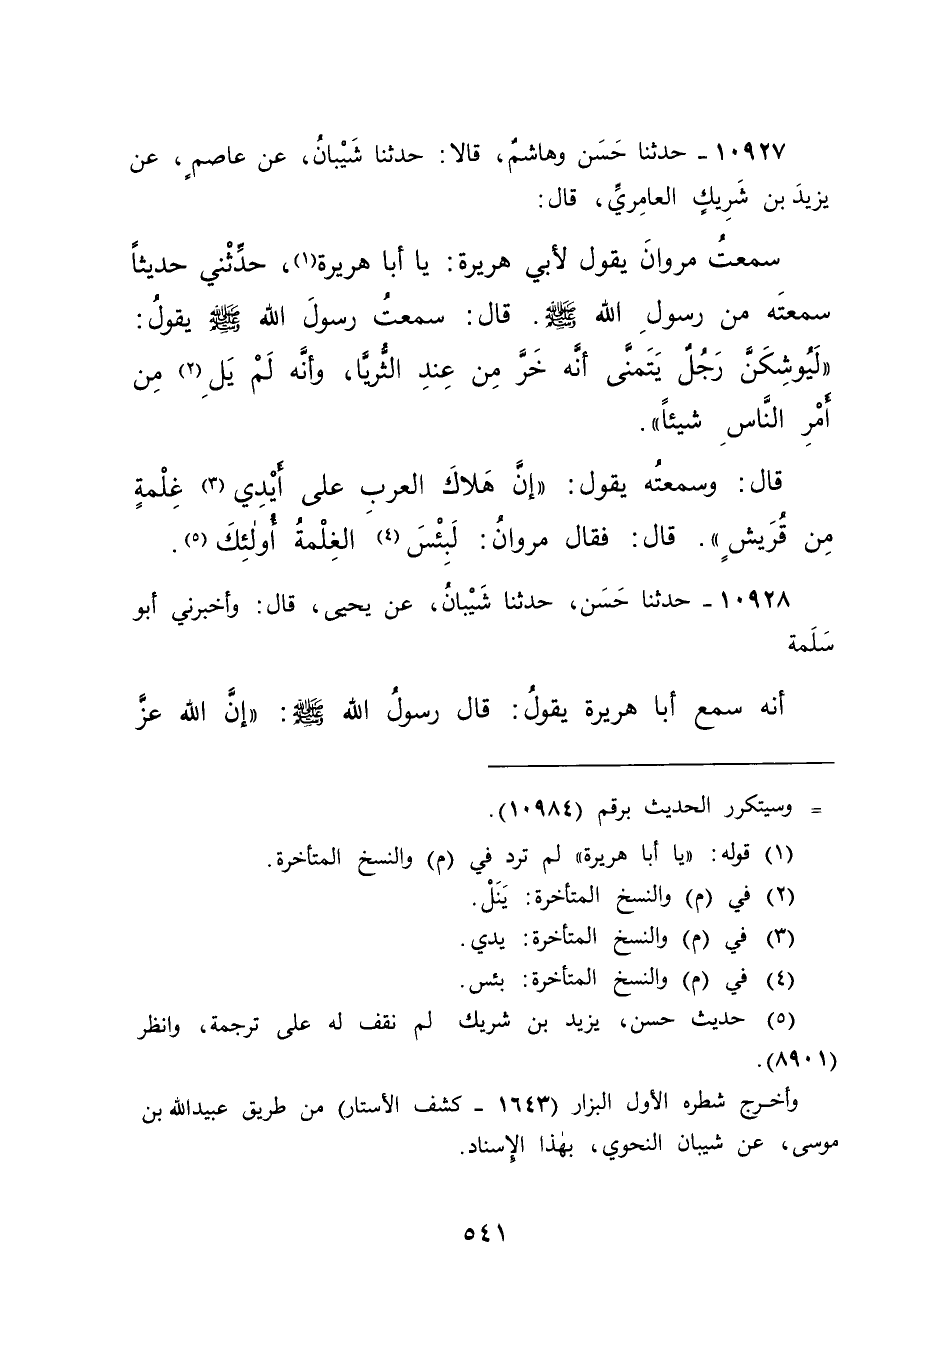 ١٠٩٢٧ - حدثنا حَسَن وهاشمٌ، قالا: حدثنا شَيْبانُ، عن عاصمٍ، عن
يزيدَ بن شَرِيكٍ العامِريِّ، قال:
سمعتُ مروانَ يقول لأبي هريرة: يا أبا هريرة(١)، حدِّثْني حديثاً
سمعتَه من رسولِ الله ﷺ. قال: سمعتُ رسولَ الله ﷺ يقولُ:
«لَيُوشِكَنَّ رَجُلٌ يَتَمنَّى أنَّه خَرَّ مِن عِندِ الثُّريَّا، وأنَّه لَمْ يَلِ(٢) مِن
أَمْرِ النَّاسِ شيئاً».
قال: وسمعتُه يقول: «إنَّ هَلاكَ العربِ على أَيْدِي(٣) غِلْمةٍ
مِن قُرَيشٍ». قال: فقال مروانُ: لَبِئْسَ(٤) الغِلْمةُ أُولٰئِكَ(٥).
١٠٩٢٨ - حدثنا حَسَن، حدثنا شَيْبانُ، عن يحيى، قال: وأخبرني أبو
سَلَمة
أنه سمع أبا هريرة يقولُ: قال رسولُ الله ﷺ: «إنَّ الله عزَّ
= وسيتكرر الحديث برقم (١٠٩٨٤).
(١) قوله: «يا أبا هريرة» لم ترد في (م) والنسخ المتأخرة.
(٢) في (م) والنسخ المتأخرة: يَنَلْ.
(٣) في (م) والنسخ المتأخرة: يدي.
(٤) في (م) والنسخ المتأخرة: بئس.
(٥) حديث حسن، يزيد بن شريك لم نقف له على ترجمة، وانظر
(٨٩٠١).
وأخرج شطره الأول البزار (١٦٤٣ - كشف الأستار) من طريق عبيدالله بن
موسى، عن شيبان النحوي، بهٰذا الإسناد.
٥٤١